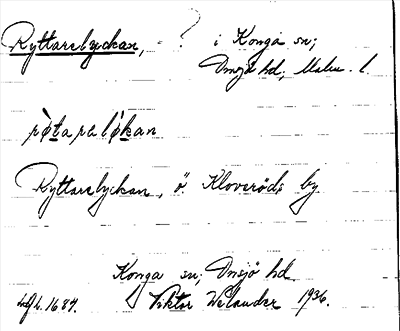 Ryttarelyckan, - ? i Konga sn;
Onsjö hd, Malm. l.
Ryttarelyckan, ö. Kloveröds by
Konga sn, Onsjö hd
h. 1684. Viktor Welander 1936.